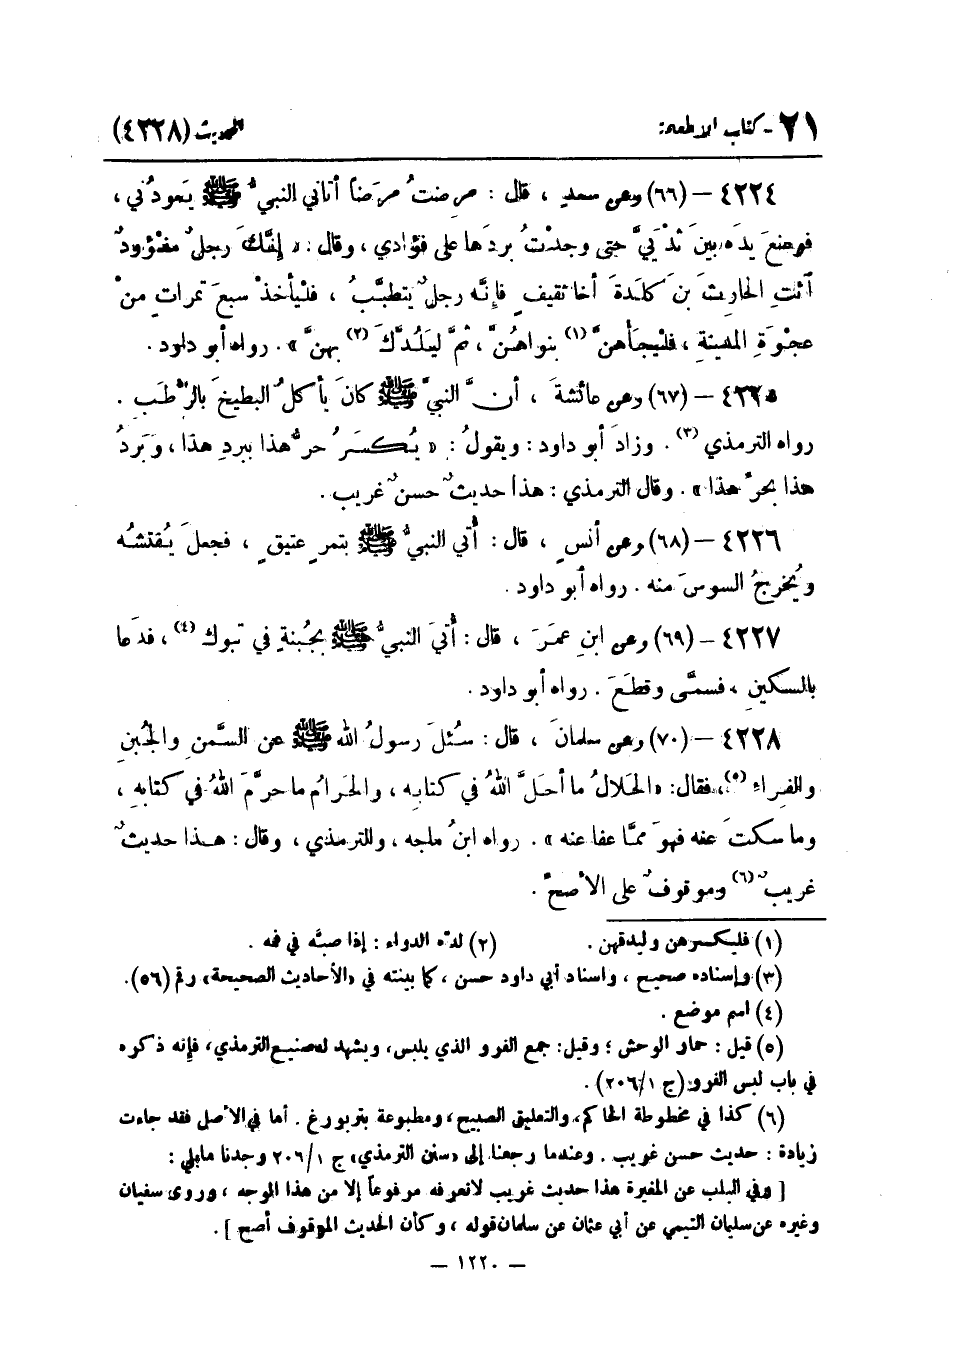 ٢١ - كتاب الاطعمة
الحديث (٤٢٢٨)
٤٢٢٤ – (٦٦) وعن سعدٍ ، قال : مرضتُ مرَضاً أتاني النبيُّ ﷺ يَعودُني ،
فوضعَ يدَه بينَ ثدْيَيَّ حتى وجدْتُ بردَها على فؤادي ، وقال : « إنَّكَ رجلٌ مفْؤودٌ
ائتِ الحارثَ بن كَلَدةَ أخا ثقيفٍ فإنَّه رجلٌ يتطبَّبُ ، فلْيأخذْ سبعَ تمراتٍ منْ
عجْوَةِ المدينةِ ، فلْيجَأْهنَّ (١) بنواهُنَّ ، ثمَّ ليَلُدَّكَ (٢) بهنَّ » . رواه أبو داود .
٤٢٢٥ – (٦٧) وعن عائشةَ ، أنَّ النبيَّ ﷺ كانَ يأكلُ البطيخَ بالرُّطَبِ .
رواه الترمذي (٣) . وزادَ أبو داود : ويقولُ : « يُكسَرُ حرُّ هذا ببردِ هذا ، وبَردُ
هذا بحرِّ هذا » . وقال الترمذي : هذا حديثٌ حسنٌ غريب .
٤٢٢٦ – (٦٨) وعن أنسٍ ، قال : أُتي النبيُّ ﷺ بتمرٍ عتيقٍ ، فجعلَ يُفتشُه
ويُخرجُ السوسَ منه . رواه أبو داود .
٤٢٢٧ – (٦٩) وعن ابنِ عمَرَ ، قال : أُتيَ النبيُّ ﷺ بجُبنةٍ في تبوك (٤) ، فدَعا
بالسكينِ ، فسمَّى وقطَعَ . رواه أبو داود .
٤٢٢٨ – (٧٠) وعن سلمانَ ، قال : سُئلَ رسولُ الله ﷺ عن السَّمنِ والجُبنِ
والفِراءِ (٥) ، فقال : «الحَلالُ ما أحلَّ اللهُ في كتابِه ، والحَرامُ ما حرَّمَ اللهُ في كتابِه ،
وما سكتَ عنه فهوَ ممَّا عفا عنه » . رواه ابنُ ماجه ، والترمذي ، وقال : هـذا حديثٌ
غريبٌ (٦) وموقوفٌ على الأصحِّ .
(١) فليكسرهن وليدقهن .
(٢) لدَّه الدواء : إذا صبَّه في فمه .
(٣) وإسناده صحيح ، واسناد أبي داود حسن ، كما بينته في «الأحاديث الصحيحة» رقم (٥٦) .
(٤) اسم موضع .
(٥) قيل : حمار الوحش ؛ وقيل : جمع الفرو الذي يلبس، ويشهد له صنيع الترمذي ، فإنه ذكره
في باب لبس الفرو (ج ٢٠٦/١) .
(٦) كذا في مخطوطة الحاكم، والتعليق الصبيح ، ومطبوعة بتربورغ . أما في الأصل فقد جاءت
زيادة : حديث حسن غريب . وعندما رجعنا إلى «سنن الترمذي» ج ٢٠٦/١ وجدنا مايلي :
[ وفي الباب عن المغيرة هذا حديث غريب لانعرفه مرفوعاً إلا من هذا الوجه ، وروى سفيان
وغيره عن سليمان التيمي عن أبي عثمان عن سلمان قوله ، وكأن الحديث الموقوف أصح ] .
– ١٢٢٠ –